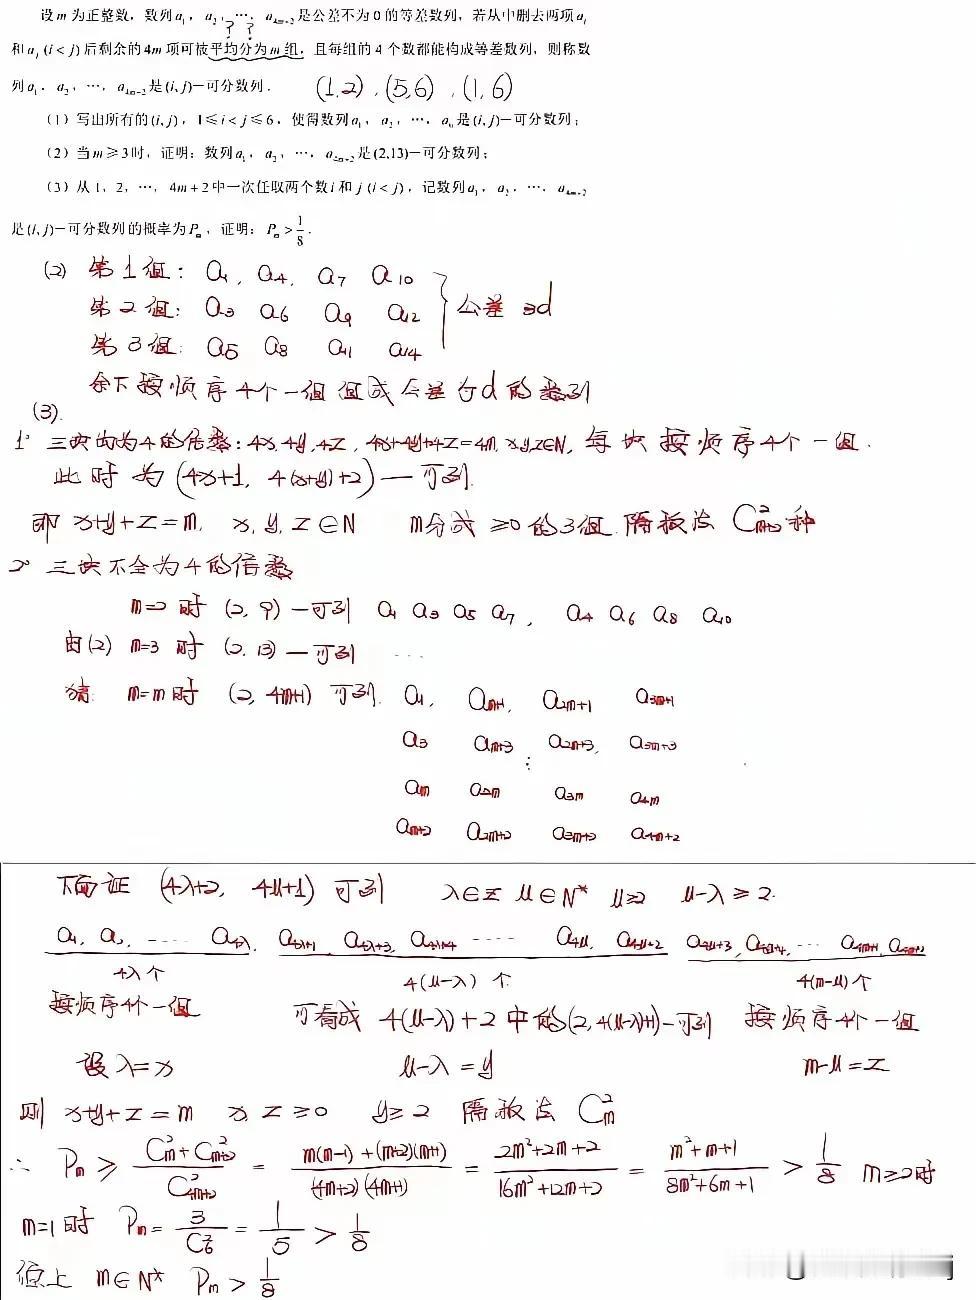 设m为正整数，数列a₁，a₂，…，a₄ₘ₊₂是公差不为0的等差数列，若从中删去两项aᵢ
? ?
和aⱼ(i<j)后剩余的4m项可被平均分为m组，且每组的4个数都能构成等差数列，则称数
列a₁，a₂，…，a₄ₘ₊₂是(i,j)—可分数列.
(1,2), (5,6), (1,6)
（1）写出所有的(i,j)，1≤i<j≤6，使得数列a₁，a₂，…，a₆是(i,j)—可分数列；
（2）当m≥3时，证明：数列a₁，a₂，…，a₄ₘ₊₂是(2,13)—可分数列；
（3）从1，2，…，4m+2中一次任取两个数i和j(i<j)，记数列a₁，a₂，…，a₄ₘ₊₂
是(i,j)—可分数列的概率为Pₘ，证明：Pₘ>1/8.
(2) 第1组: a₁, a₄, a₇ a₁₀
第2组: a₃ a₆ a₉ a₁₂ 公差3d
第3组: a₅ a₈ a₁₁ a₁₄
余下按顺序4个一组组成公差为d的数列
(3).
1° 三块均为4的倍数: 4x, 4y, 4z, 4x+4y+4z=4m, x,y,z∈N, 每块按顺序4个一组.
此时为(4x+1, 4(x+y)+2)—可列.
即 x+y+z=m, x, y, z∈N m分成≥0的3组 隔板法 C²ₘ₊₂种
2° 三块不全为4的倍数
m=2时 (2,9)—可列 a₁ a₃ a₅ a₇, a₄ a₆ a₈ a₁₀
由(2) m=3时 (2,13)—可列 ....
猜: m=m时 (2, 4m+1) 可列. a₁, aₘ₊₁, a₂ₘ₊₁ a₃ₘ₊₁
a₃ aₘ₊₃ a₂ₘ₊₃, a₃ₘ₊₃
⋮
aₘ a₂ₘ a₃ₘ a₄ₘ
aₘ₊₂ a₂ₘ₊₂ a₃ₘ₊₂ a₄ₘ₊₂
下面证 (4λ+2, 4μ+1) 可列 λ∈Z μ∈N* μ≥2 μ-λ≥2.
a₁, a₂ ..... a₄λ, a₄λ₊₁ a₄λ₊₃, a₄λ₊₄ ..... a₄μ, a₄μ₊₂ a₄μ₊₃, a₄μ₊₄, ... a₄ₘ₊₁, a₄ₘ₊₂
4λ个 4(μ-λ)个 4(m-μ)个
按顺序4个一组 可看成 4(μ-λ)+2中的(2, 4(μ-λ)+1)—可列 按顺序4个一组
设λ=x μ-λ=y m-μ=z
则 x+y+z=m x, z≥0 y≥2 隔板法 C²ₘ
∴ Pₘ ≥ (C²ₘ+C²ₘ₊₂)/C²₄ₘ₊₂ = (m(m-1)+(m+2)(m+1))/((4m+2)(4m+1)) = (2m²+2m+2)/(16m²+12m+2) = (m²+m+1)/(8m²+6m+1) > 1/8 m≥2时
m=1时 Pₘ=3/C²₆=1/5>1/8
综上 m∈N* Pₘ>1/8